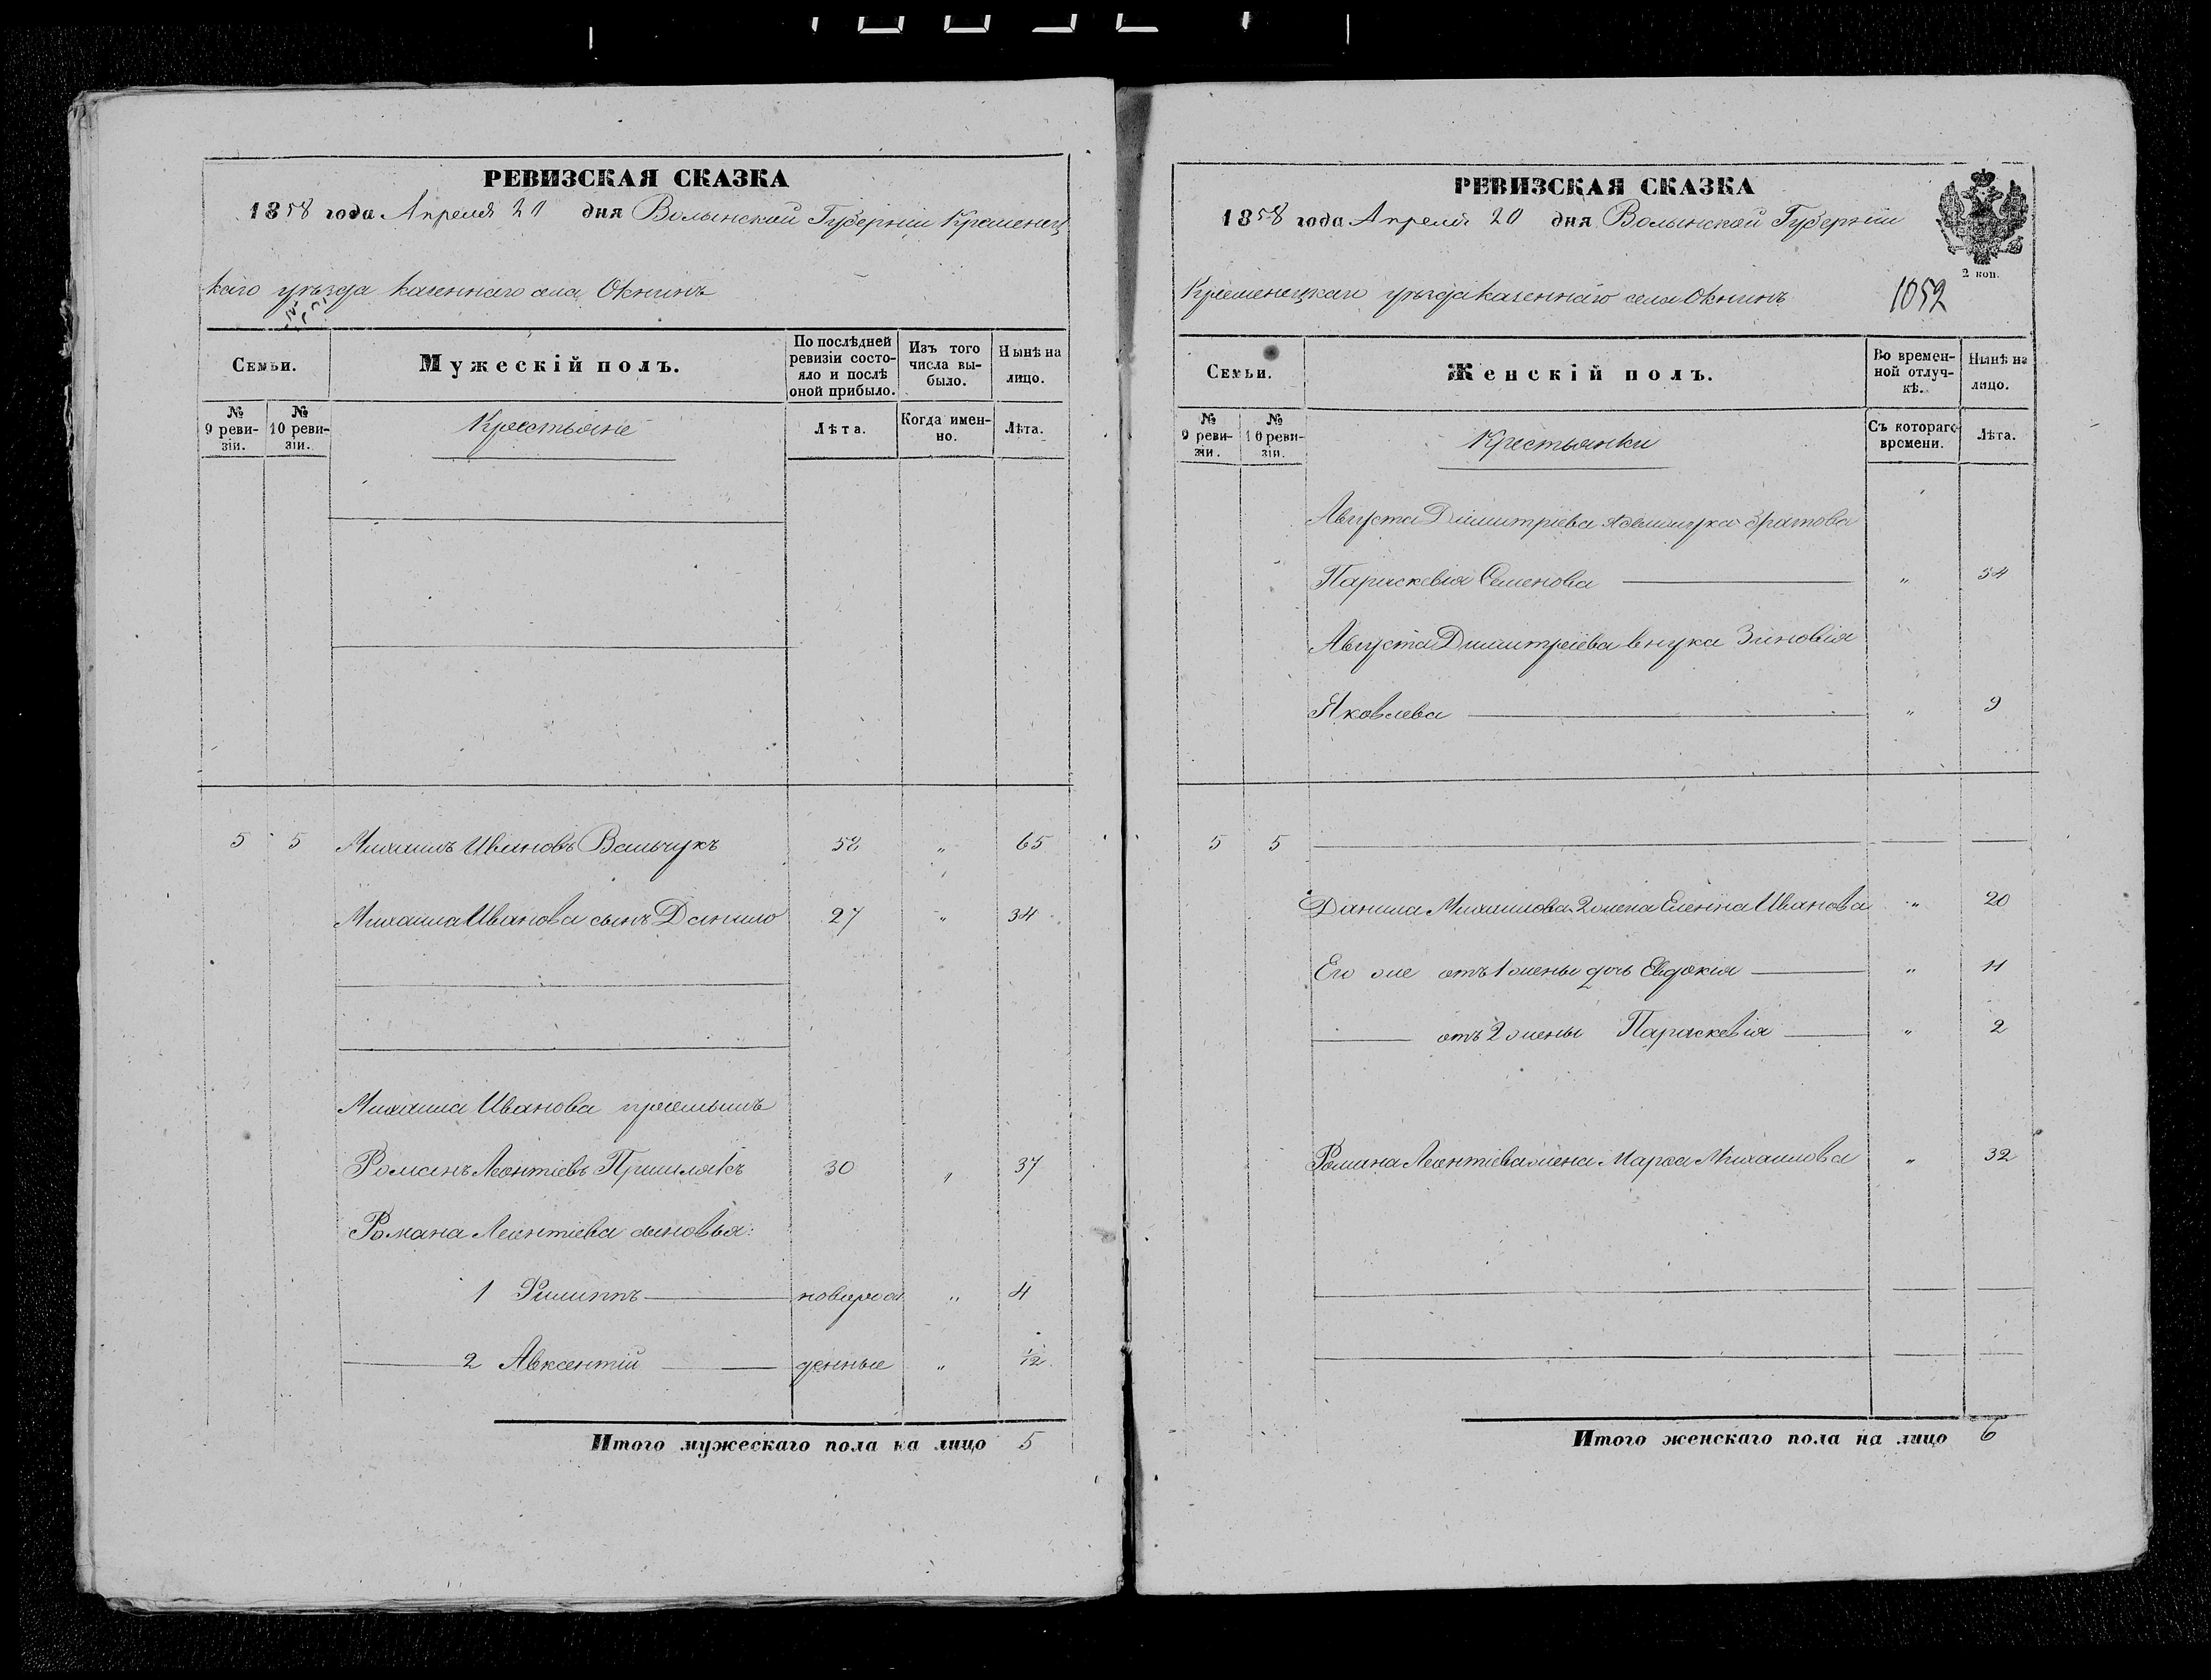 РЕВИЗСКАЯ СКАЗКА
1858 года Апреля 20 дня Волынской Губерніи Кременец
каго уѣзда казеннаго села Окнинъ
Семьи.
Мужескій полъ.
По послѣдней ревизіи состояло и послѣ оной прибыло.
Изъ того числа выбыло.
Нынѣ на лицо.
№ 9 ревизіи.
№ 10 ревизіи.
Крестьяне
Лѣта.
Когда именно.
Лѣта.
5 5 Михаилъ Ивановъ Вальчукъ 58 „ 65
Михаила Иванова сынъ Данило 27 „ 34
Михаила Иванова приемышъ
Романъ Леонтіевъ 30 „ 37
Романа Леонтіева сыновья:
1 Филиппъ новорож „ 4
2 Авксентій денные „ 1/2
Итого мужескаго пола на лицо 5
РЕВИЗСКАЯ СКАЗКА
1858 года Апреля 20 дня Волынской Губерніи
2 коп.
Кременецкаго уѣзда казеннаго села Окнинъ
1052
Семьи.
Женскій полъ.
Во временной отлучкѣ.
Нынѣ на лицо.
№ 9 ревизіи.
№ 10 ревизіи.
Крестьянки
Съ котораго времени.
Лѣта.
Августа Димитріева
Параскевія Семенова „ 54
Августа Димитріева внука Зиновія
Яковлева „ 9
5 5
Данила Михаилова 2 жена Елена Иванова „ 20
Его же отъ 1 жены дочь Евдокія „ 11
отъ 2 жены Параскевія „ 2
Романа Леонтіева жена Марѳа Михаилова „ 32
Итого женскаго пола на лицо 6